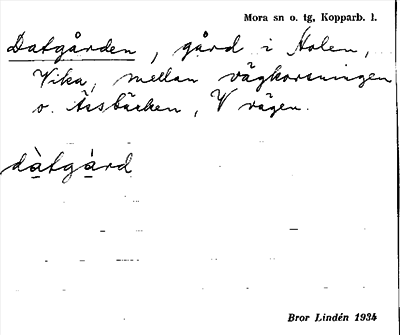 Mora sn o. tg, Kopparb. l.
Datgården, gård i Holen,
Vika, mellan vägkorsningen
o. Åssbäcken, V vägen.
dàtgàrd
Bror Lindén 1934